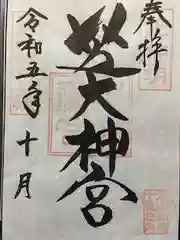 奉拝
芝大神宮
令和五年十月